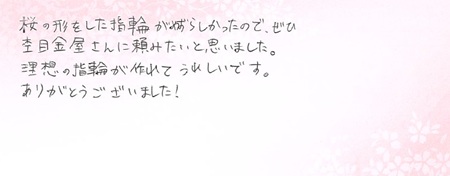 桜の形をした指輪がめずらしかったので、ぜひ
杢目金屋さんに頼みたいと思いました。
理想の指輪が作れてうれしいです。
ありがとうございました!